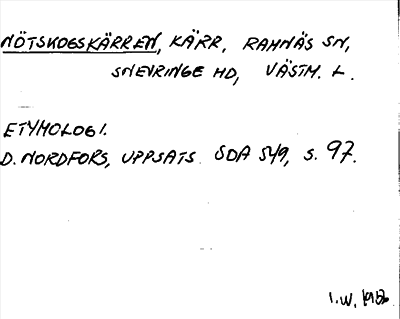 NÖTSKOGSKÄRREN, KÄRR, RAMNÄS SN,
SNEVRINGE HD, VÄSTM. L.
ETYMOLOGI.
D. NORDFORS, UPPSATS SOA 549, S. 97.
I.W. 1986